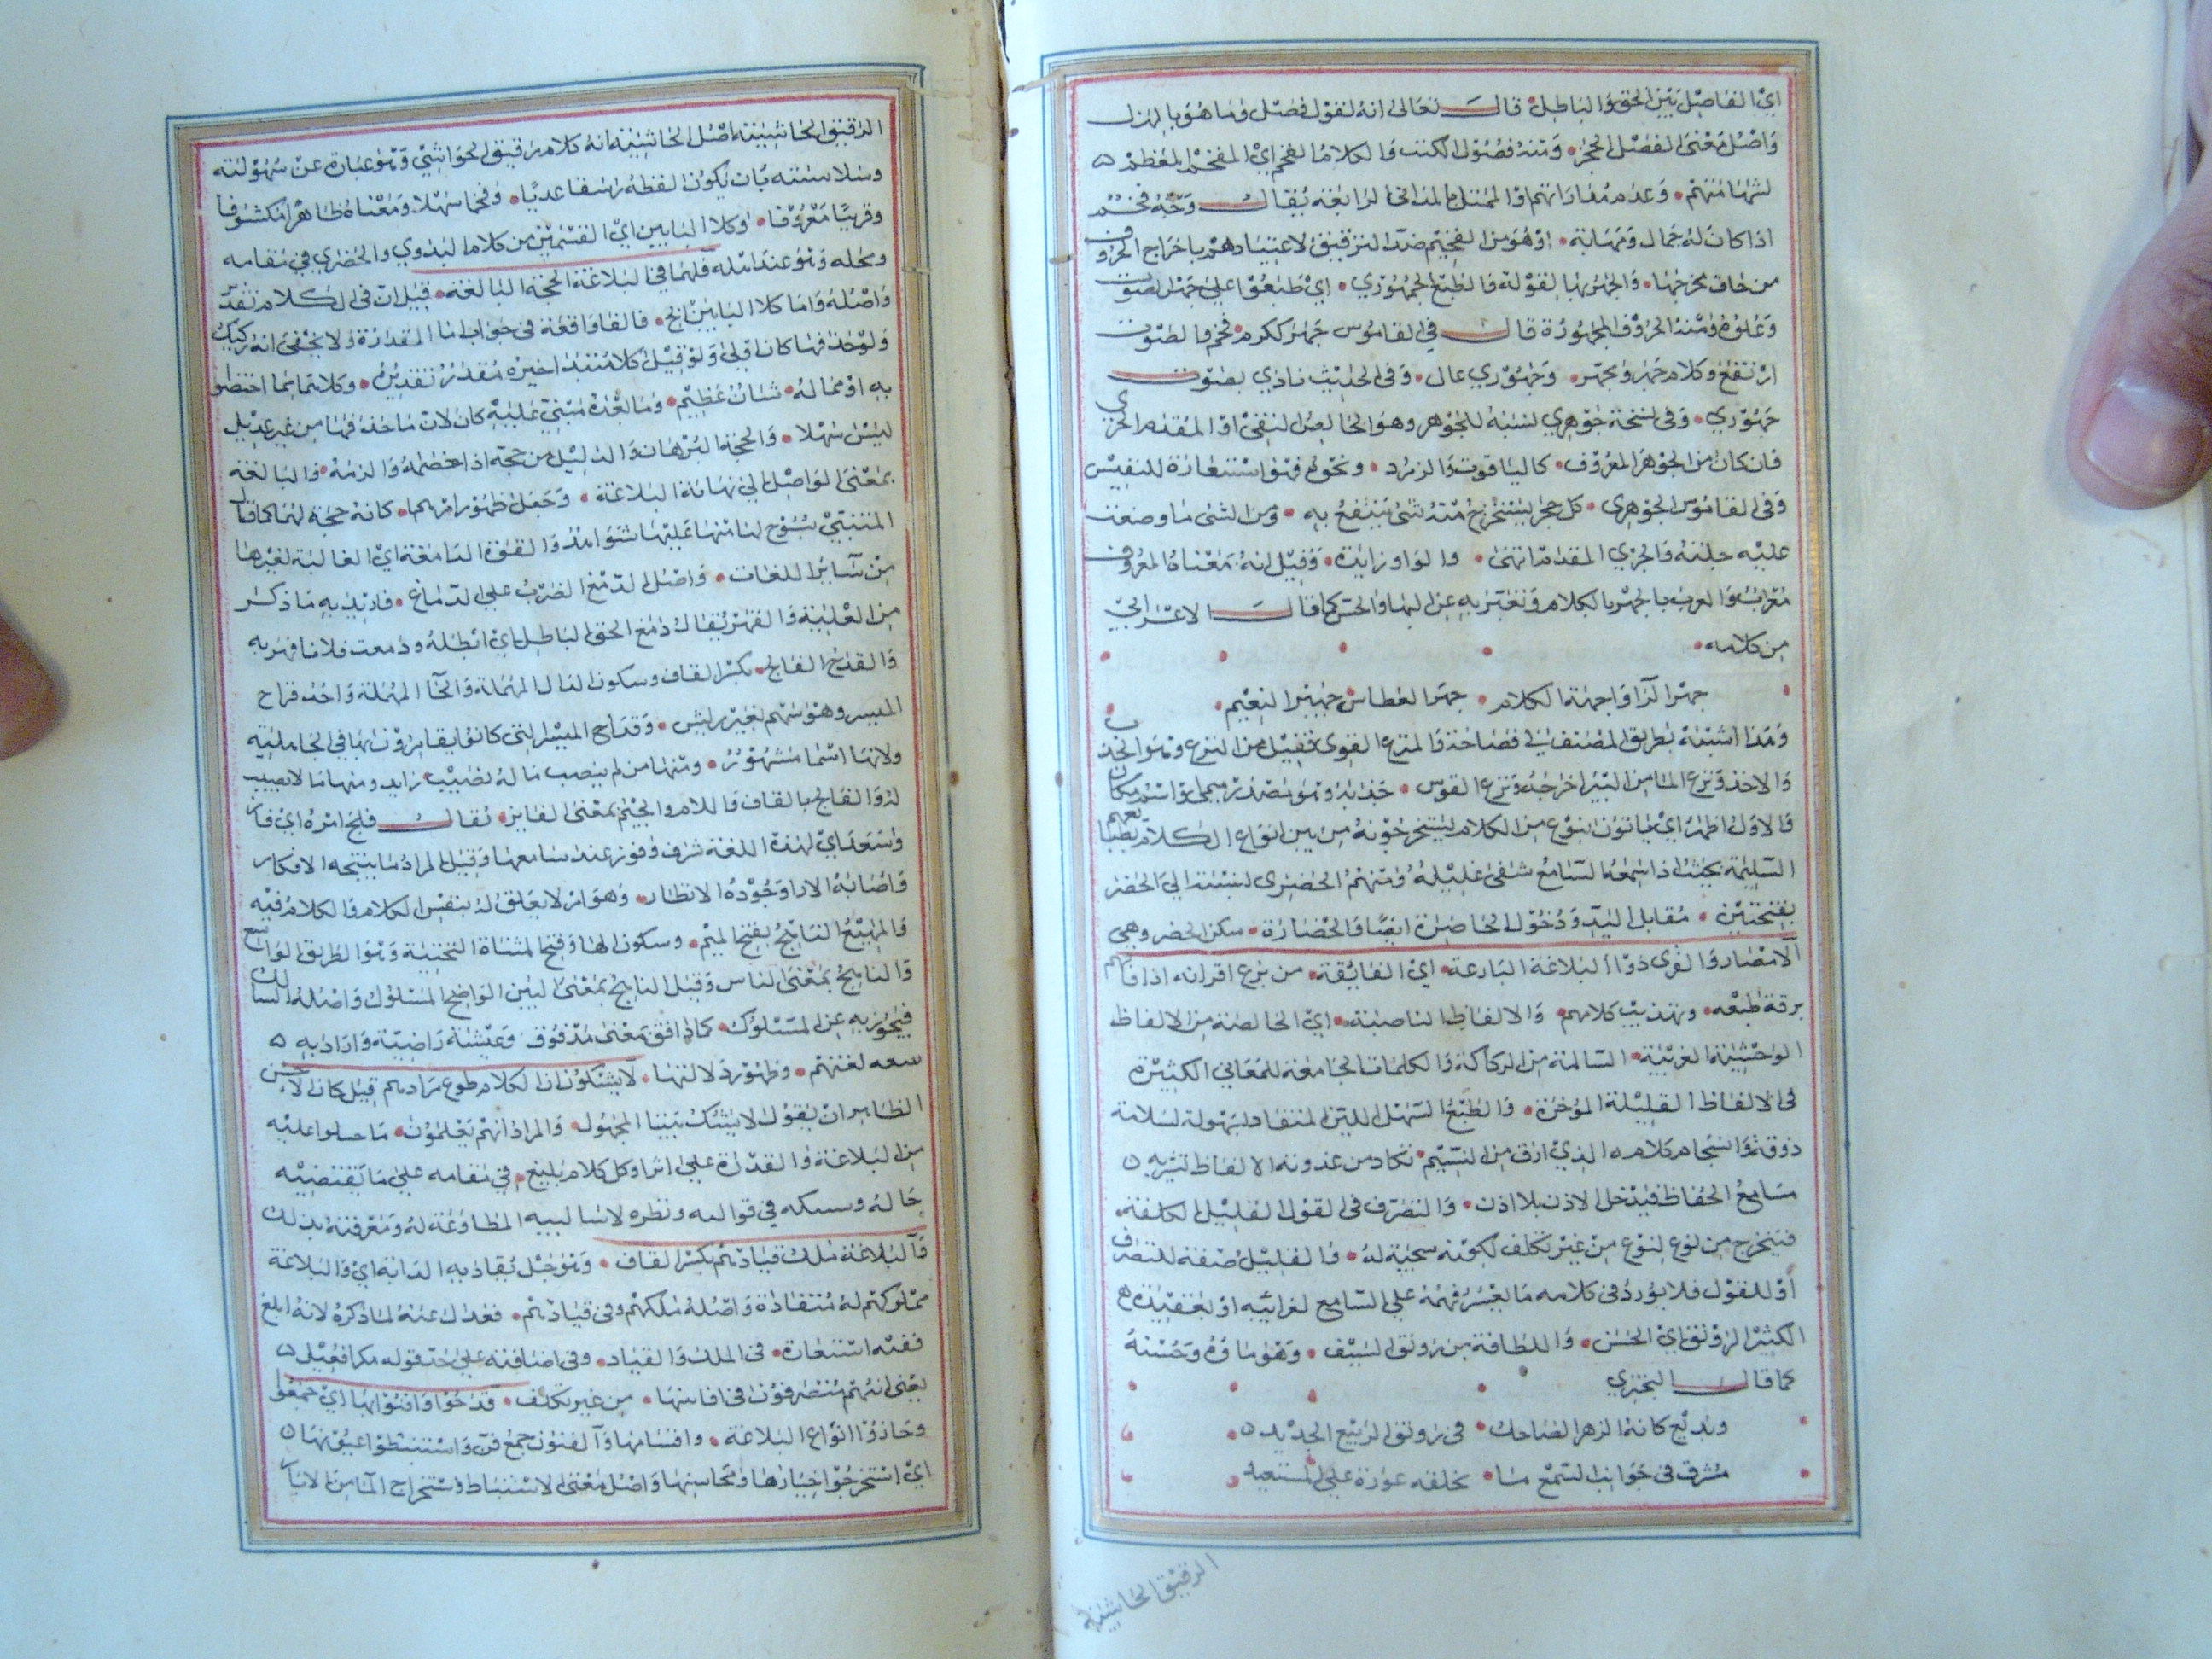 اي الفاصل بين الحق والباطل قال تعالى انه لقول فصل وما هو بالهزل
واصل معنى الفصل الحجز ومنه فصول الكتب والكلام الفخم اي المفخم المعظم
لشهامتهم وعدم مفاداتهم او الممتلي المذاني لرابعة يقال وجه فخم
اذا كان له جمال ومهابة او هو من التفخيم ضد الترقيق لاعتيادهم باخراج الحروف
من حاق مخرجها والجهر بها بقوله والطبع الجهوري اي طبعوا على جهر الصوت
وعلوه ومنه الحروف المجهورة قال في القاموس جهر ككرم فخم والصوت
ارتفع وكلام جهر ومجهر وجهوري عال وفي الحديث نادي بصوت
جهوري وفي نسخة جوهري نسبة للجوهر وهو الخالص النقي او المقدم الجري
فان كان من الجوهر المعروف كالياقوت والزمرد ونحوه فهو استعارة للنفيس
وفي القاموس الجوهري كل حجر يستخرج منه شئ ينتفع به ومن الشئ ما وضعت
عليه جبلته والجري المقدم انتهى والواو زايدة وقيل انه معناه المعروف
معرب والعرب بالجهر بالكلام وتعبر به عن البها والحسن كما قال الاعرابي
من كلامه
جهير الروا جهير الكلام جهير العطاس جهير النعيم
وهذا اشبه بطريق المصنف في فصاحة والمنزع القوي فقيل من النزع وهو الجذب
والاخذ ونزع الما من البير اخرجه ونزع القوس جذبه وهو مصدر ميمي او اسم مكان
والاول اظهر اي ياتون بنوع من الكلام يستخرجونه من بين انواع الكلام بطباعهم
السليمة بحيث اذا سمعه السامع شفى غليله ومنهم الحضري نسبة الى الحضر
بفتحتين مقابل البدو ودخول الحاضرة ايضا والحضارة سكن الحضر وهي
الامصار والقرى ذو البلاغة البارعة اي الفايقة من برع اقرانه اذا فاقهم
برقة طبعه وتهذيب كلامهم والالفاظ الناصعة اي الخالصة من الالفاظ
الوحشية الغريبة السالمة من الركاكة والكلمات الجامعة للمعاني الكثيرة
في الالفاظ القليلة الموخرة والطبع السهل اللين المنقاد بسهولة لسلامة
ذوقه وانسجام كلامه الذي ارق من النسيم تكاد من عذوبته الالفاظ تشربه
مسامع الحفاظ فيدخل الاذن بلا اذن والتصرف في القول القليل الكلفة
فيخرج من نوع لنوع من غير تكلف لكونه سجية له والقليل صفة للتصرف
او للقول فلا يورد في كلامه ما يعسر فهمه على السامع لغرابته او لتعقيده
الكثير الرونق اي الحسن واللطافة من رونق السيف وهو ماوه وحسنه
كما قال البحتري
وبديع كانه الزهر الضاحك في رونق الربيع الجديد
مشرق في جوانب السمع ما يخلقه عوده على المستعيد
الرقيق الحاشية
الرقيق الحاشية اصل الحاشية انه كلام رقيق الحواشي وهو عبارة عن سهولته
وسلاسته بان يكون لفظه راشقا عذبا وفخما سهلا ومعناه ظاهرا مكشوفا
وقريبا معروفا وكلا البابين اي القسمين من كلام البدوي والحضري في مقامه
ومحله وهو عند اهله فلهما في البلاغة الحجة البالغة قيل ان في الكلام تقدير
واصله واما كلا البابين الخ فالفا واقعة في جواب اما المقدرة ولا يخفى انه ركيك
ولو حذفها كان اولى ولو قيل كلا مبتدا خبره مقدر تقديره وكلاهما مما اختصوا
به او مما له شان عظيم وما بعده مبني عليه كان لان ما حذفها من غير بديل
ليس سهلا والحجة البرهان والدليل من حجه اذا خصمه والزمه والبالغة
بمعنى الواصل الى نهاية البلاغة وجعل ظهور امرهما كانه حجة لهما كما قال
المتنبي سبوح لها منها عليها شواهد والقوة الدامغة اي الغالبة لغيرها
من ساير اللغات واصل الدمغ الضرب على الدماغ فاريد به ما ذكر
من الغلبة والقهر يقال دمغ الحق الباطل اي ابطله ودمغت فلانا قهر به
والقدح الفالج بكسر القاف وسكون الدال المهملة والحا المهملة واحد قداح
الميسر وهو سهم بغير ريش وقداح الميسر التي كانوا يقامرون بها في الجاهلية
ولانها اسما مشهور ومنها من لم ينصب ما له نصيب زايد ومنها ما لا نصيب
له والفالج بالفاء واللام والجيم بمعنى الفايز يقال فلج امره اي فاز
وسعد اي لهذه اللغة شرف وفوز عند سامعها وقيل المراد ما ينتجه الافكار
واصابة الارا وجودة الانظار وهو امر لا يعلق له بنفس الكلام والكلام فيه
والمهيع الناهج بفتح الميم وسكون الها وفتح المثناة التحتية وهو الطريق الواسع
والناهج بمعنى لناس وقيل الناهج بمعنى البين الواضح المسلوك واصله السالك
فيجوز به عن المسلوك كما دافق بمعنى مدفوق وعيشة راضية واراد به
سعة لغتهم وظهور دلالتها لا يشكون ان الكلام طوع مرادهم قيل كان الاحسن
الظاهر ان يقول لا يشك ببنا المجهول والمراد انهم يعلمون ما حصلوا عليه
من البلاغة والقدرة على انشا وكل كلام بليغ في مقامه على ما يقتضيه
حاله وسبكه في قوالبه ونظره لاساليبه المطاوعة له ومعرفته بذلك
والبلاغة ملك قيادهم بكسر القاف وهو حبل يقاد به الدابة اي والبلاغة
مملوكتهم له منقادة واصله ملكهم وفي قيادهم فعدل عنه لما ذكره لانه ابلغ
ففيه استعارة في الملك والقياد وفي اضافته على حد قوله مكافعيل
يعني انهم متصرفون في افانينها من غير تكلف قد حووا فنونها اي جمعوا
وحازوا انواع البلاغة واقسامها والفنون جمع فن واستنبطوا عيونها
اي استخرجوا خيارها ومحاسنها واصل معنى الاستنباط استخراج الما من الابار